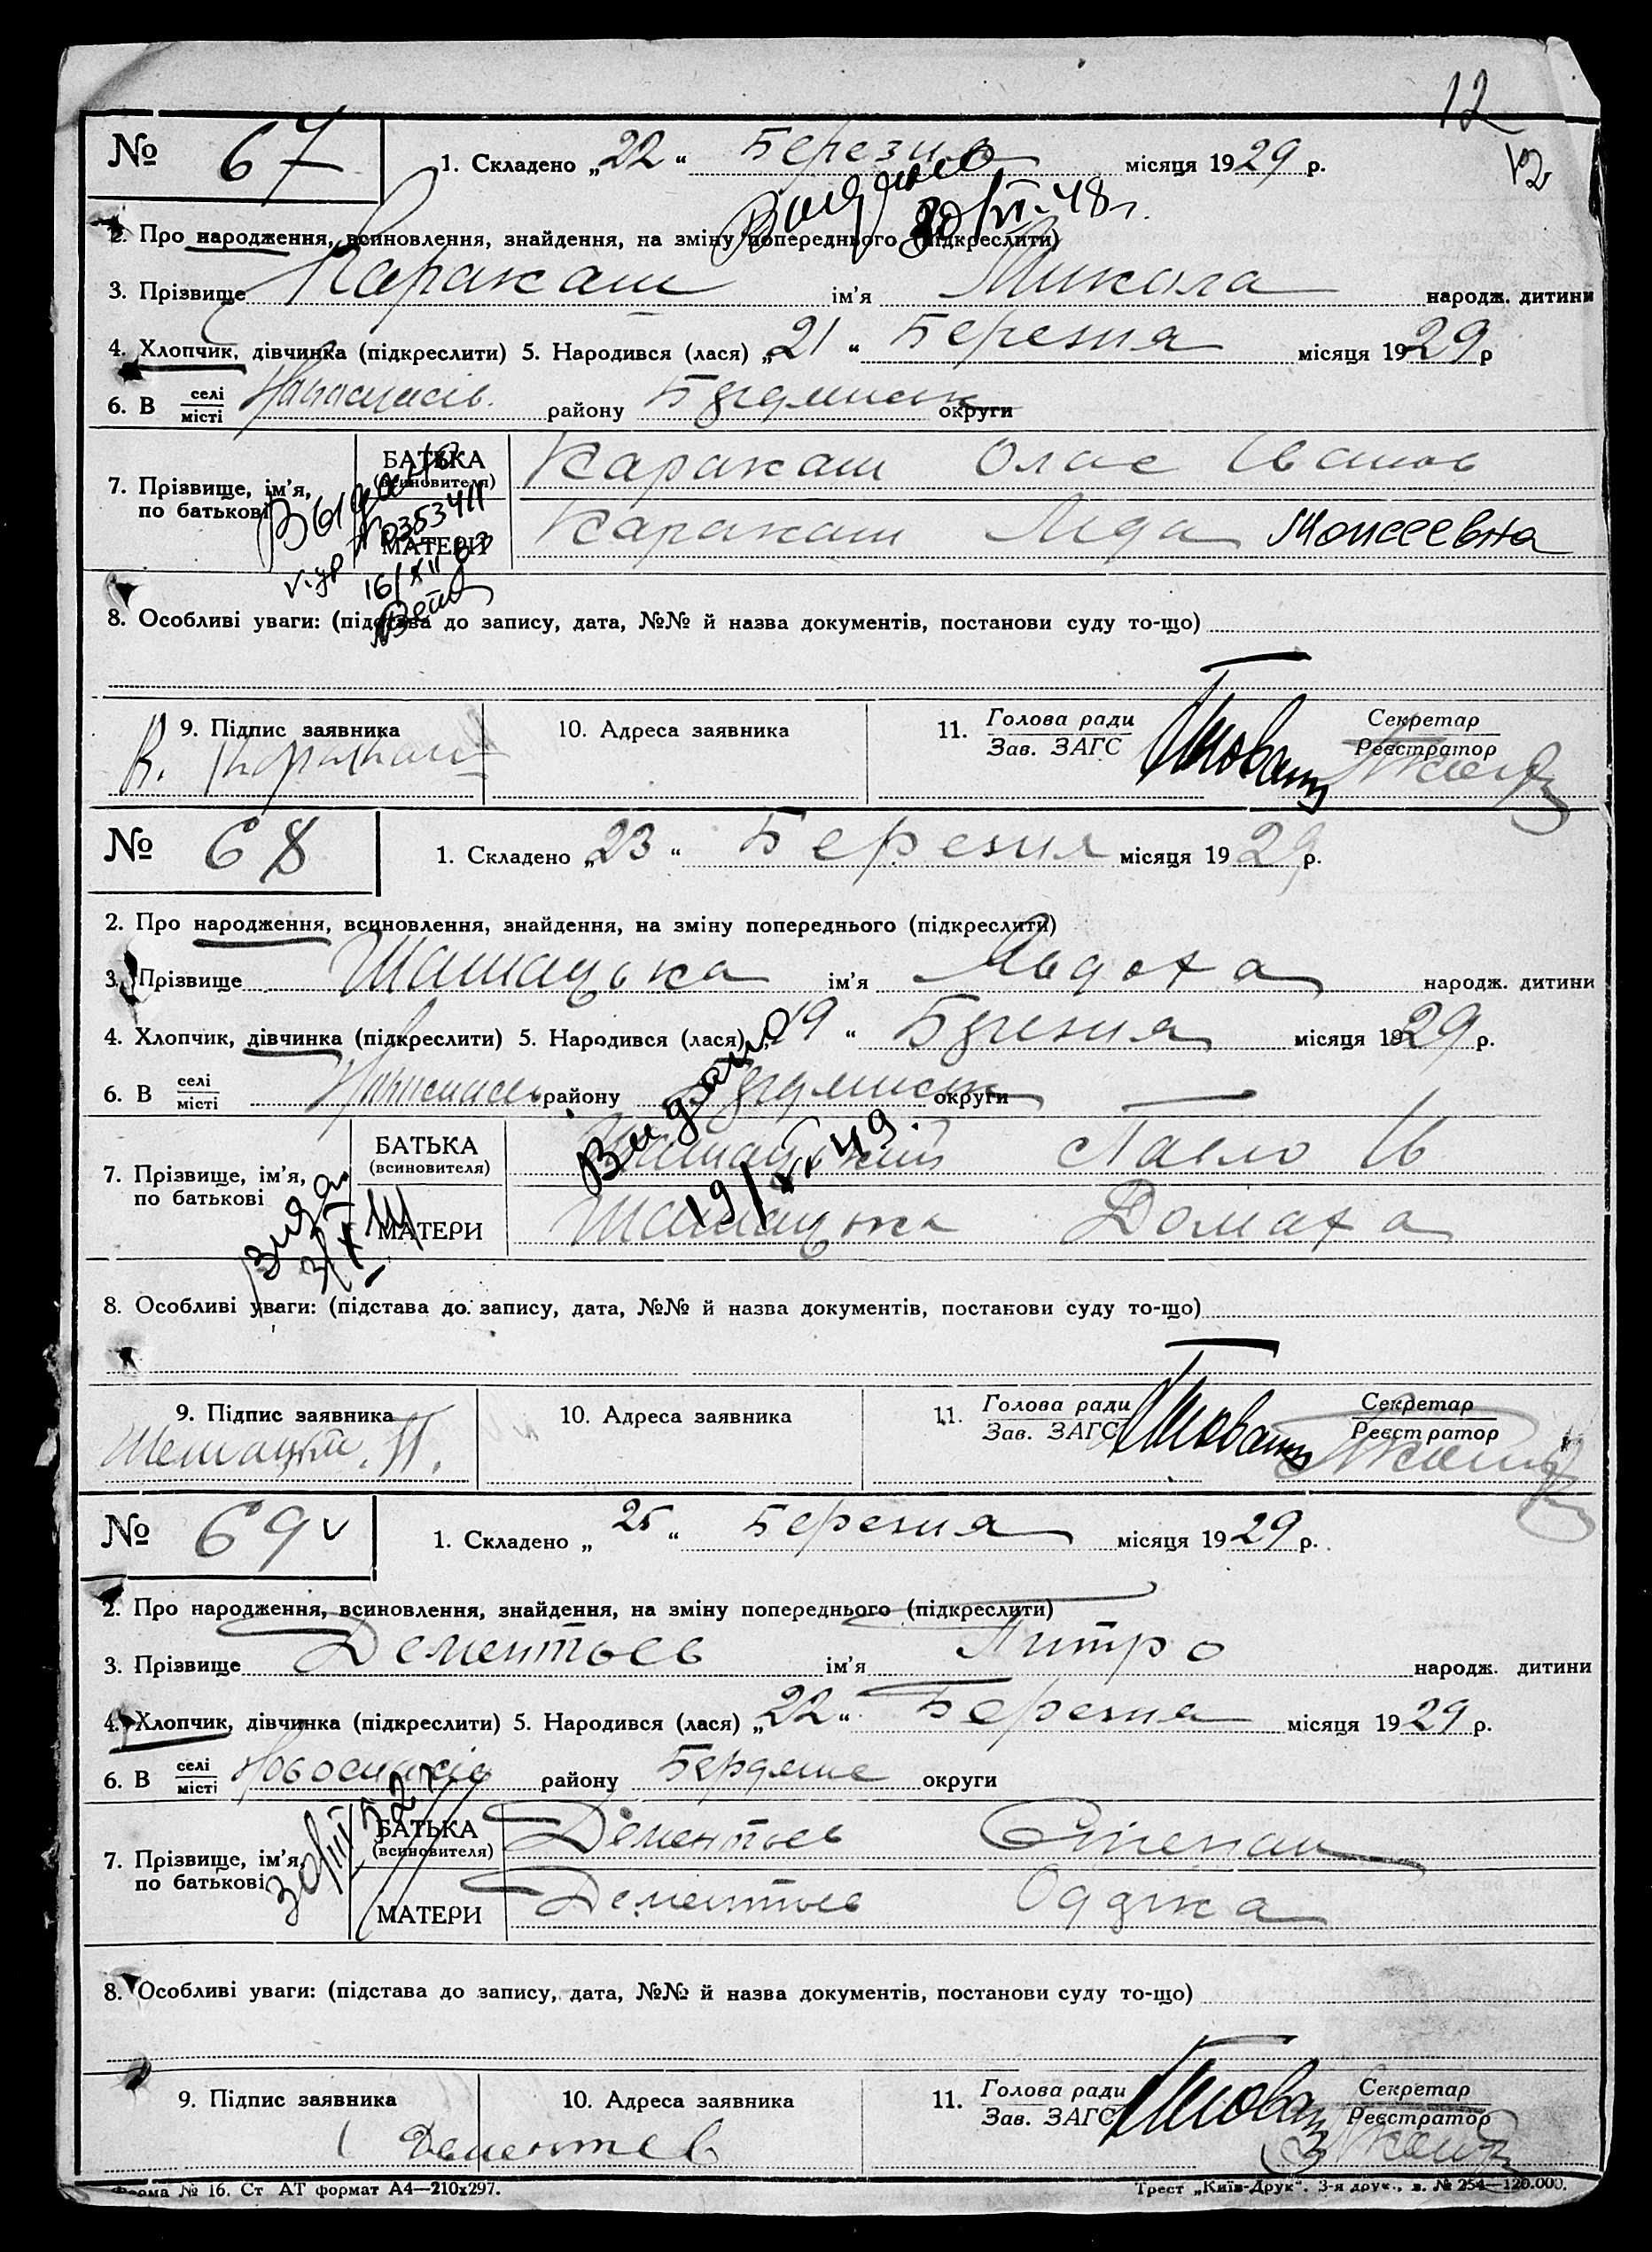 12
12
№ 67 1. Складено „22“ Березня місяця 1929 р.
Видано 30/VI-48 г.
2. Про народження, всиновлення, знайдення, на зміну попереднього (підкреслити)
3. Прізвище Каракаш ім'я Микола народж. дитини
4. Хлопчик, дівчинка (підкреслити) 5. Народився (лася) „21“ Березня місяця 1929 р
6. В селі місті району округи
7. Прізвище, ім'я, по батькові
БАТЬКА (всиновителя) Каракаш Олас Іванов
МАТЕРИ Каракаш Лида Моисеевна
8. Особливі уваги: (підстава до запису, дата, №№ й назва документів, постанови суду то-що)
9. Підпис заявника 10. Адреса заявника 11. Голова ради Зав. ЗАГС Секретар Реєстратор
К. Каракаш
№ 68 1. Складено „23“ Березня місяця 1929 р.
2. Про народження, всиновлення, знайдення, на зміну попереднього (підкреслити)
3. Прізвище Шашацька ім'я Явдоха народж. дитини
4. Хлопчик, дівчинка (підкреслити) 5. Народився (лася) „19“ Березня місяця 1929 р.
6. В селі місті району округи
Видано 19/ 49.
7. Прізвище, ім'я, по батькові
БАТЬКА (всиновителя) Шашацький Павло Ів
МАТЕРИ Шашацька Домаха
8. Особливі уваги: (підстава до запису, дата, №№ й назва документів, постанови суду то-що)
9. Підпис заявника 10. Адреса заявника 11. Голова ради Зав. ЗАГС Секретар Реєстратор
№ 69 v 1. Складено „25“ Березня місяця 1929 р.
2. Про народження, всиновлення, знайдення, на зміну попереднього (підкреслити)
3. Прізвище Дементьев ім'я Питро народж. дитини
4. Хлопчик, дівчинка (підкреслити) 5. Народився (лася) „22“ Березня місяця 1929 р.
6. В селі місті Новоспасів району Бердянс округи
7. Прізвище, ім'я, по батькові
БАТЬКА (всиновителя) Дементьев Степан
МАТЕРИ Дементьев
8. Особливі уваги: (підстава до запису, дата, №№ й назва документів, постанови суду то-що)
9. Підпис заявника 10. Адреса заявника 11. Голова ради Зав. ЗАГС Секретар Реєстратор
Дементев
Форма № 16. Ст АТ формат А4—210х297. Трест „Київ-Друк“. 3-я друк., з. № 254—120.000.